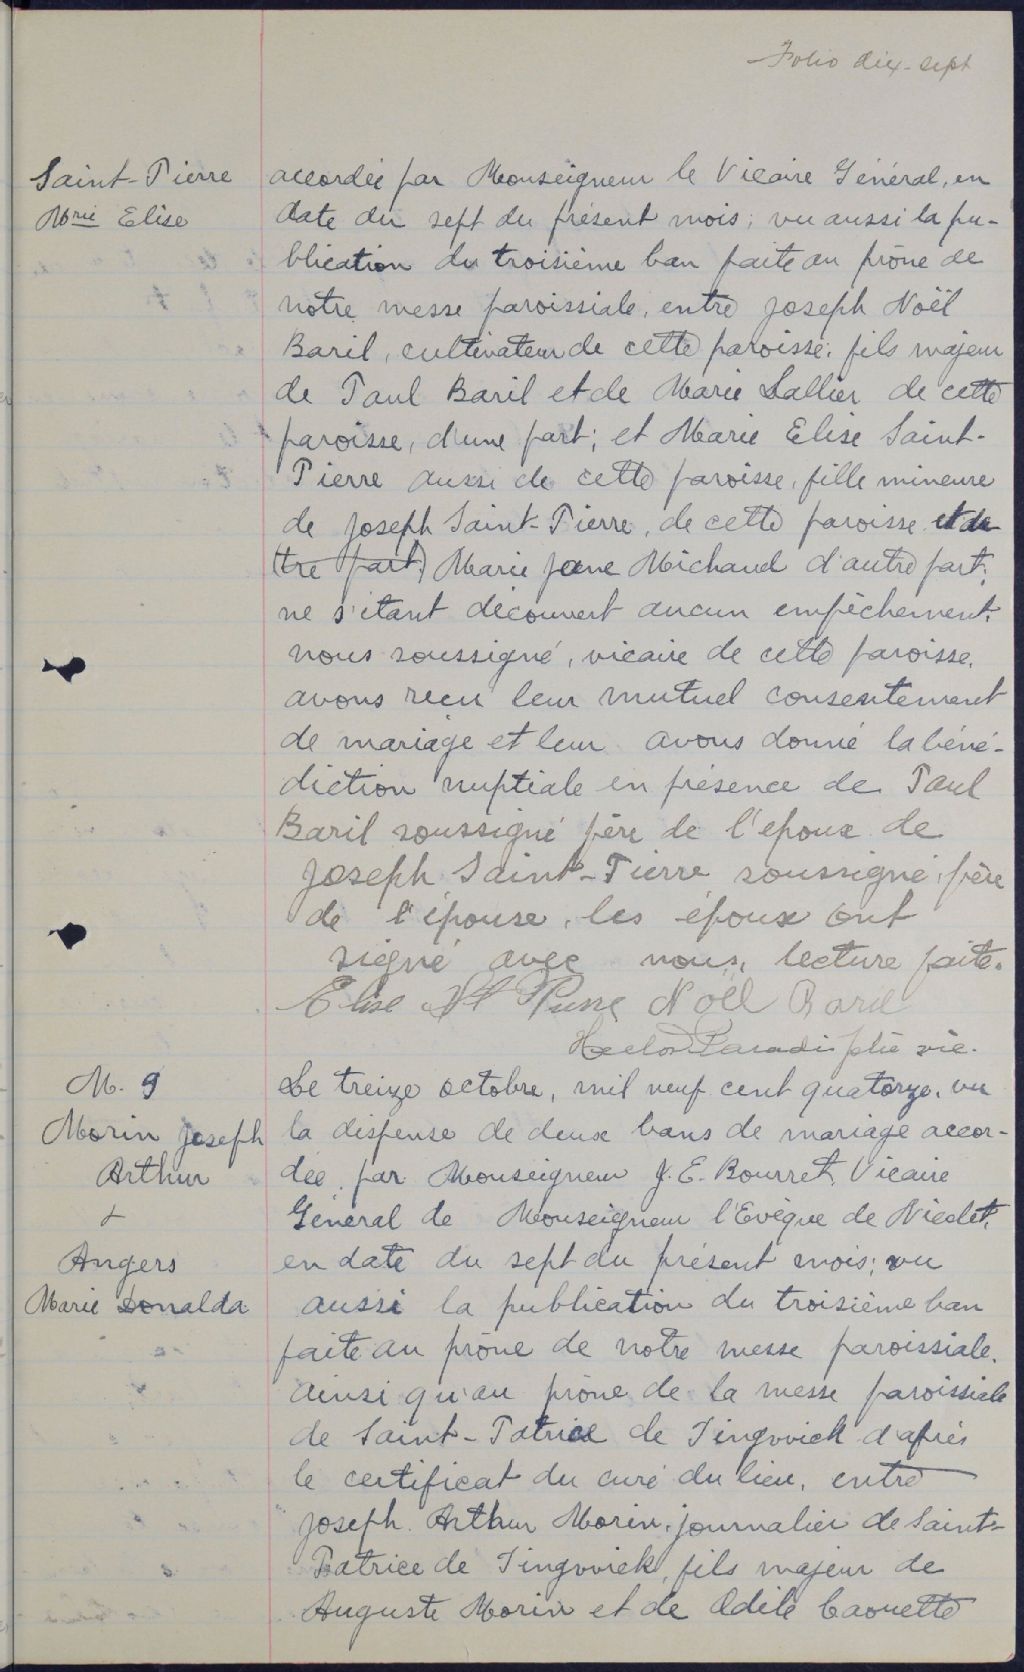 Folio dix-sept
Saint-Pierre
Mrie Elise
accordée par Monseigneur le Vicaire Général, en
date du sept du présent mois; vu aussi la pu-
blication du troisième ban faite au prône de
notre messe paroissiale, entre Joseph Noël
Baril, cultivateur de cette paroisse, fils majeur
de Paul Baril et de Marie Lallier de cette
paroisse, d'une part; et Marie Elise Saint-
Pierre aussi de cette paroisse, fille mineure
de Joseph Saint-Pierre, de cette paroisse et de
(tre part) Marie Jane Michaud d'autre part;
ne s'étant découvert aucun empêchement,
nous soussigné, vicaire de cette paroisse,
avons reçu leur mutuel consentement
de mariage et leur avons donné la béné-
diction nuptiale en présence de Paul
Baril soussigné père de l'époux de
Joseph Saint-Pierre soussigné, père
de l'épouse, les époux ont
signé avec nous, lecture faite.
Elise St Pierre Noël Baril
Hector Paradis ptre vic.
M. 9
Morin Joseph
Arthur
+
Angers
Marie Donalda
Le treize octobre, mil neuf cent quatorze, vu
la dispense de deux bans de mariage accor-
dée par Monseigneur J. E. Bourret, Vicaire
Général de Monseigneur l'Evêque de Nicolet,
en date du sept du présent mois; vu
aussi la publication du troisième ban
faite au prône de notre messe paroissiale,
ainsi qu'au prône de la messe paroissiale
de Saint-Patrice de Tingwick d'après
le certificat du curé du lieu, entre
Joseph Arthur Morin, journalier de Saint-
Patrice de Tingwick, fils majeur de
Auguste Morin et de Odile Caouette